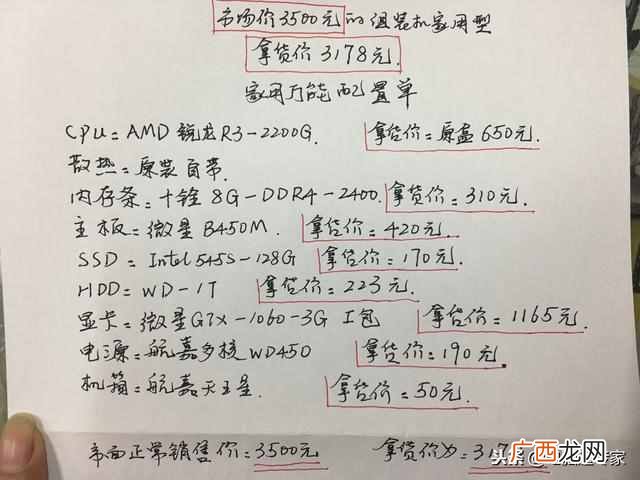 市场价3500元的组装机家用型
拿货价3178元.
家用万能配置单
CPU=AMD 锐龙R3-2200G. 拿货价=原盒650元.
散热=原装自带.
内存条=十铨 8G-DDR4-2400. 拿货价=310元.
主板=微星B450M. 拿货价=420元.
SSD=Intel 545S-128G 拿货价=170元.
HDD=WD-1T 拿货价=223元.
显卡=微星GTX-1060-3G 工包 拿货价=1165元.
电源=航嘉多核WD450 拿货价=190元.
机箱=航嘉天王星. 拿货价=50元.
市面正常销售价=3500元 拿货价为=317
广西龙网
头条